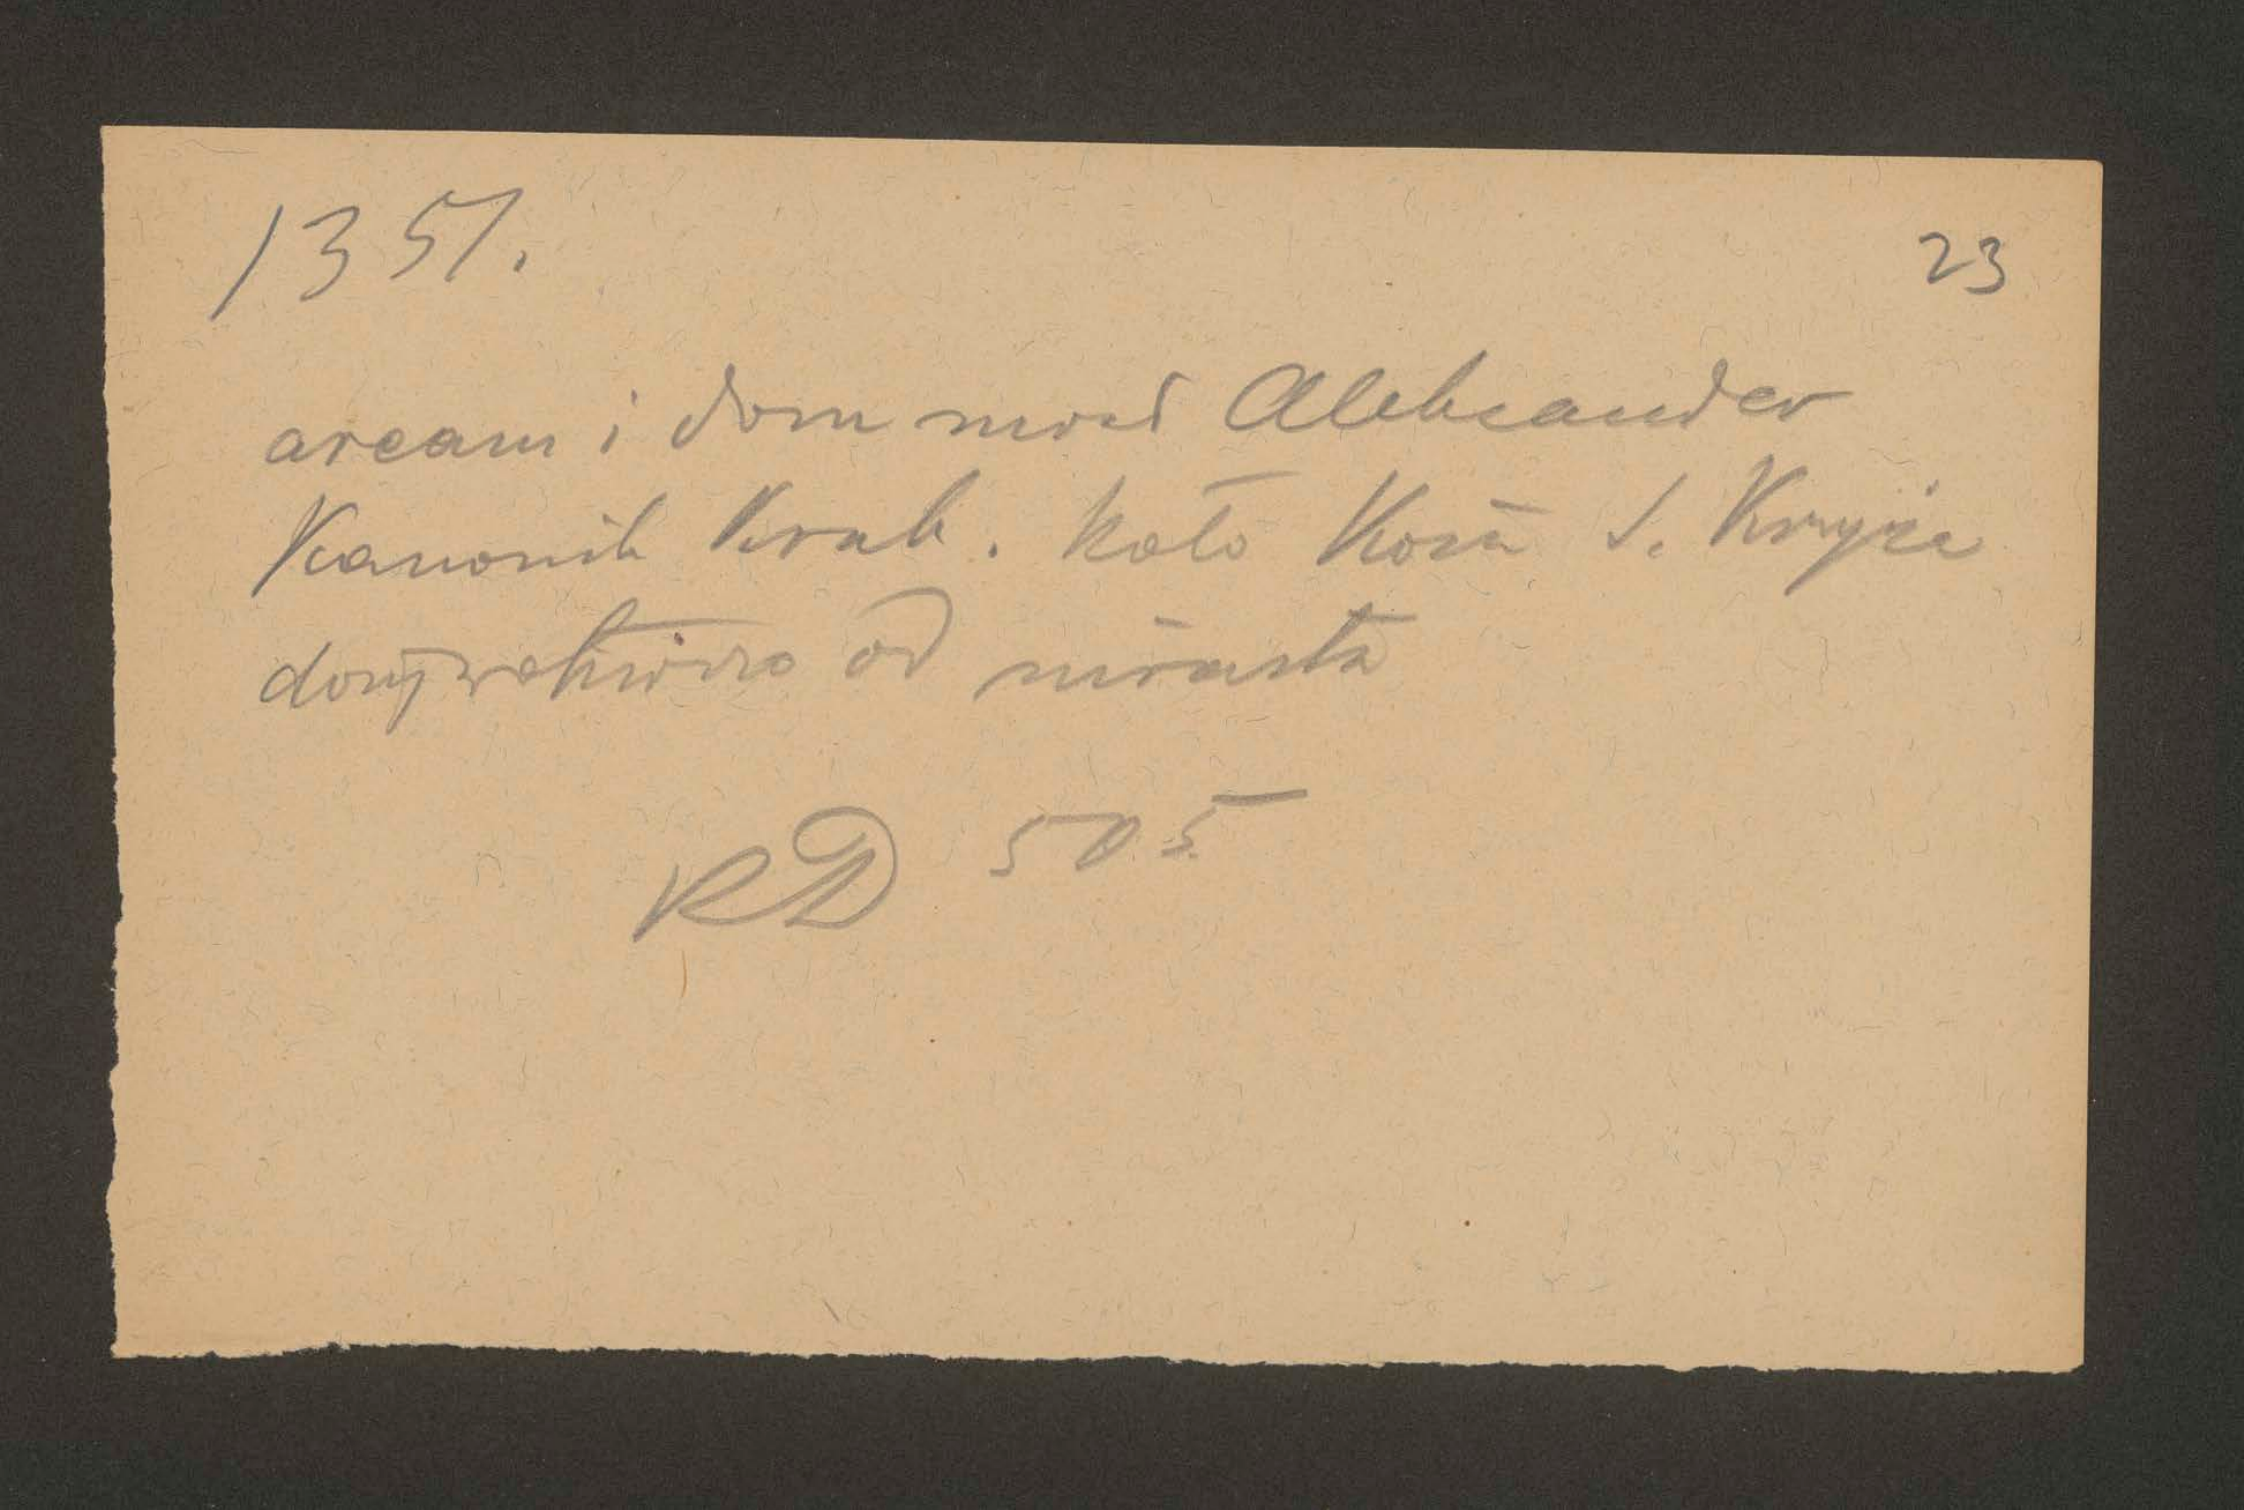 1351.
23
aream i dom miał Aleksander
Kanonik Krak. koło Kość S. Krzyża
dożywotnio od miasta
RD 505